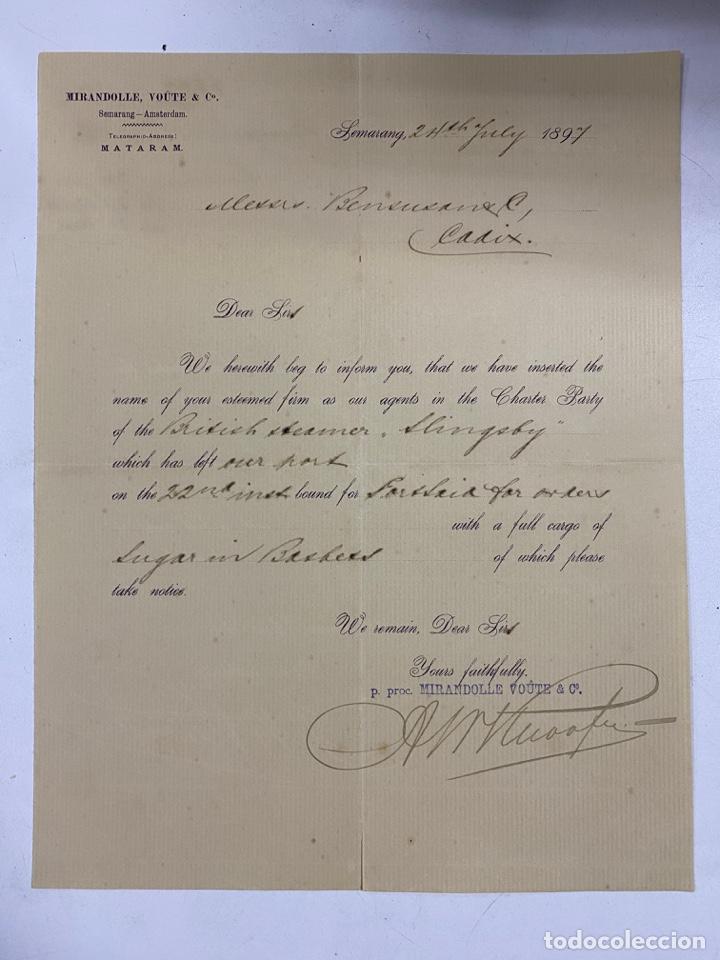 MIRANDOLLE, VOÛTE & Co.
Semarang—Amsterdam.
Telegraphic-Address:
MATARAM.
Semarang, 24th July 1897
Messrs. Bensusan & C,
Cadix.
Dear Sirs
We herewith beg to inform you, that we have inserted the
name of your esteemed firm as our agents in the Charter Party
of the British steamer „Slingsby"
which has left our port
on the 22nd inst bound for PortSaid for orders
with a full cargo of
Sugar in Baskets of which please
take notice.
We remain, Dear Sirs
Yours faithfully.
p. proc. MIRANDOLLE VOÛTE & Co.
todocoleccion
todocoleccion.net